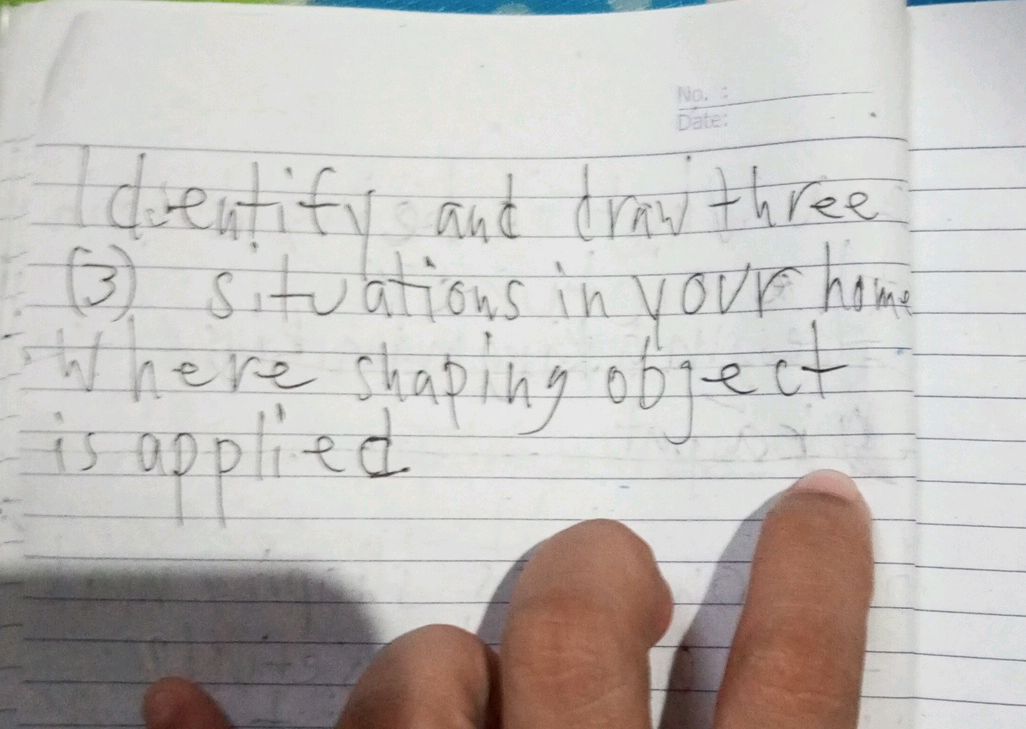 No. :
Date:
Identify and draw three
(3) situations in your home
Where shaping object
is applied